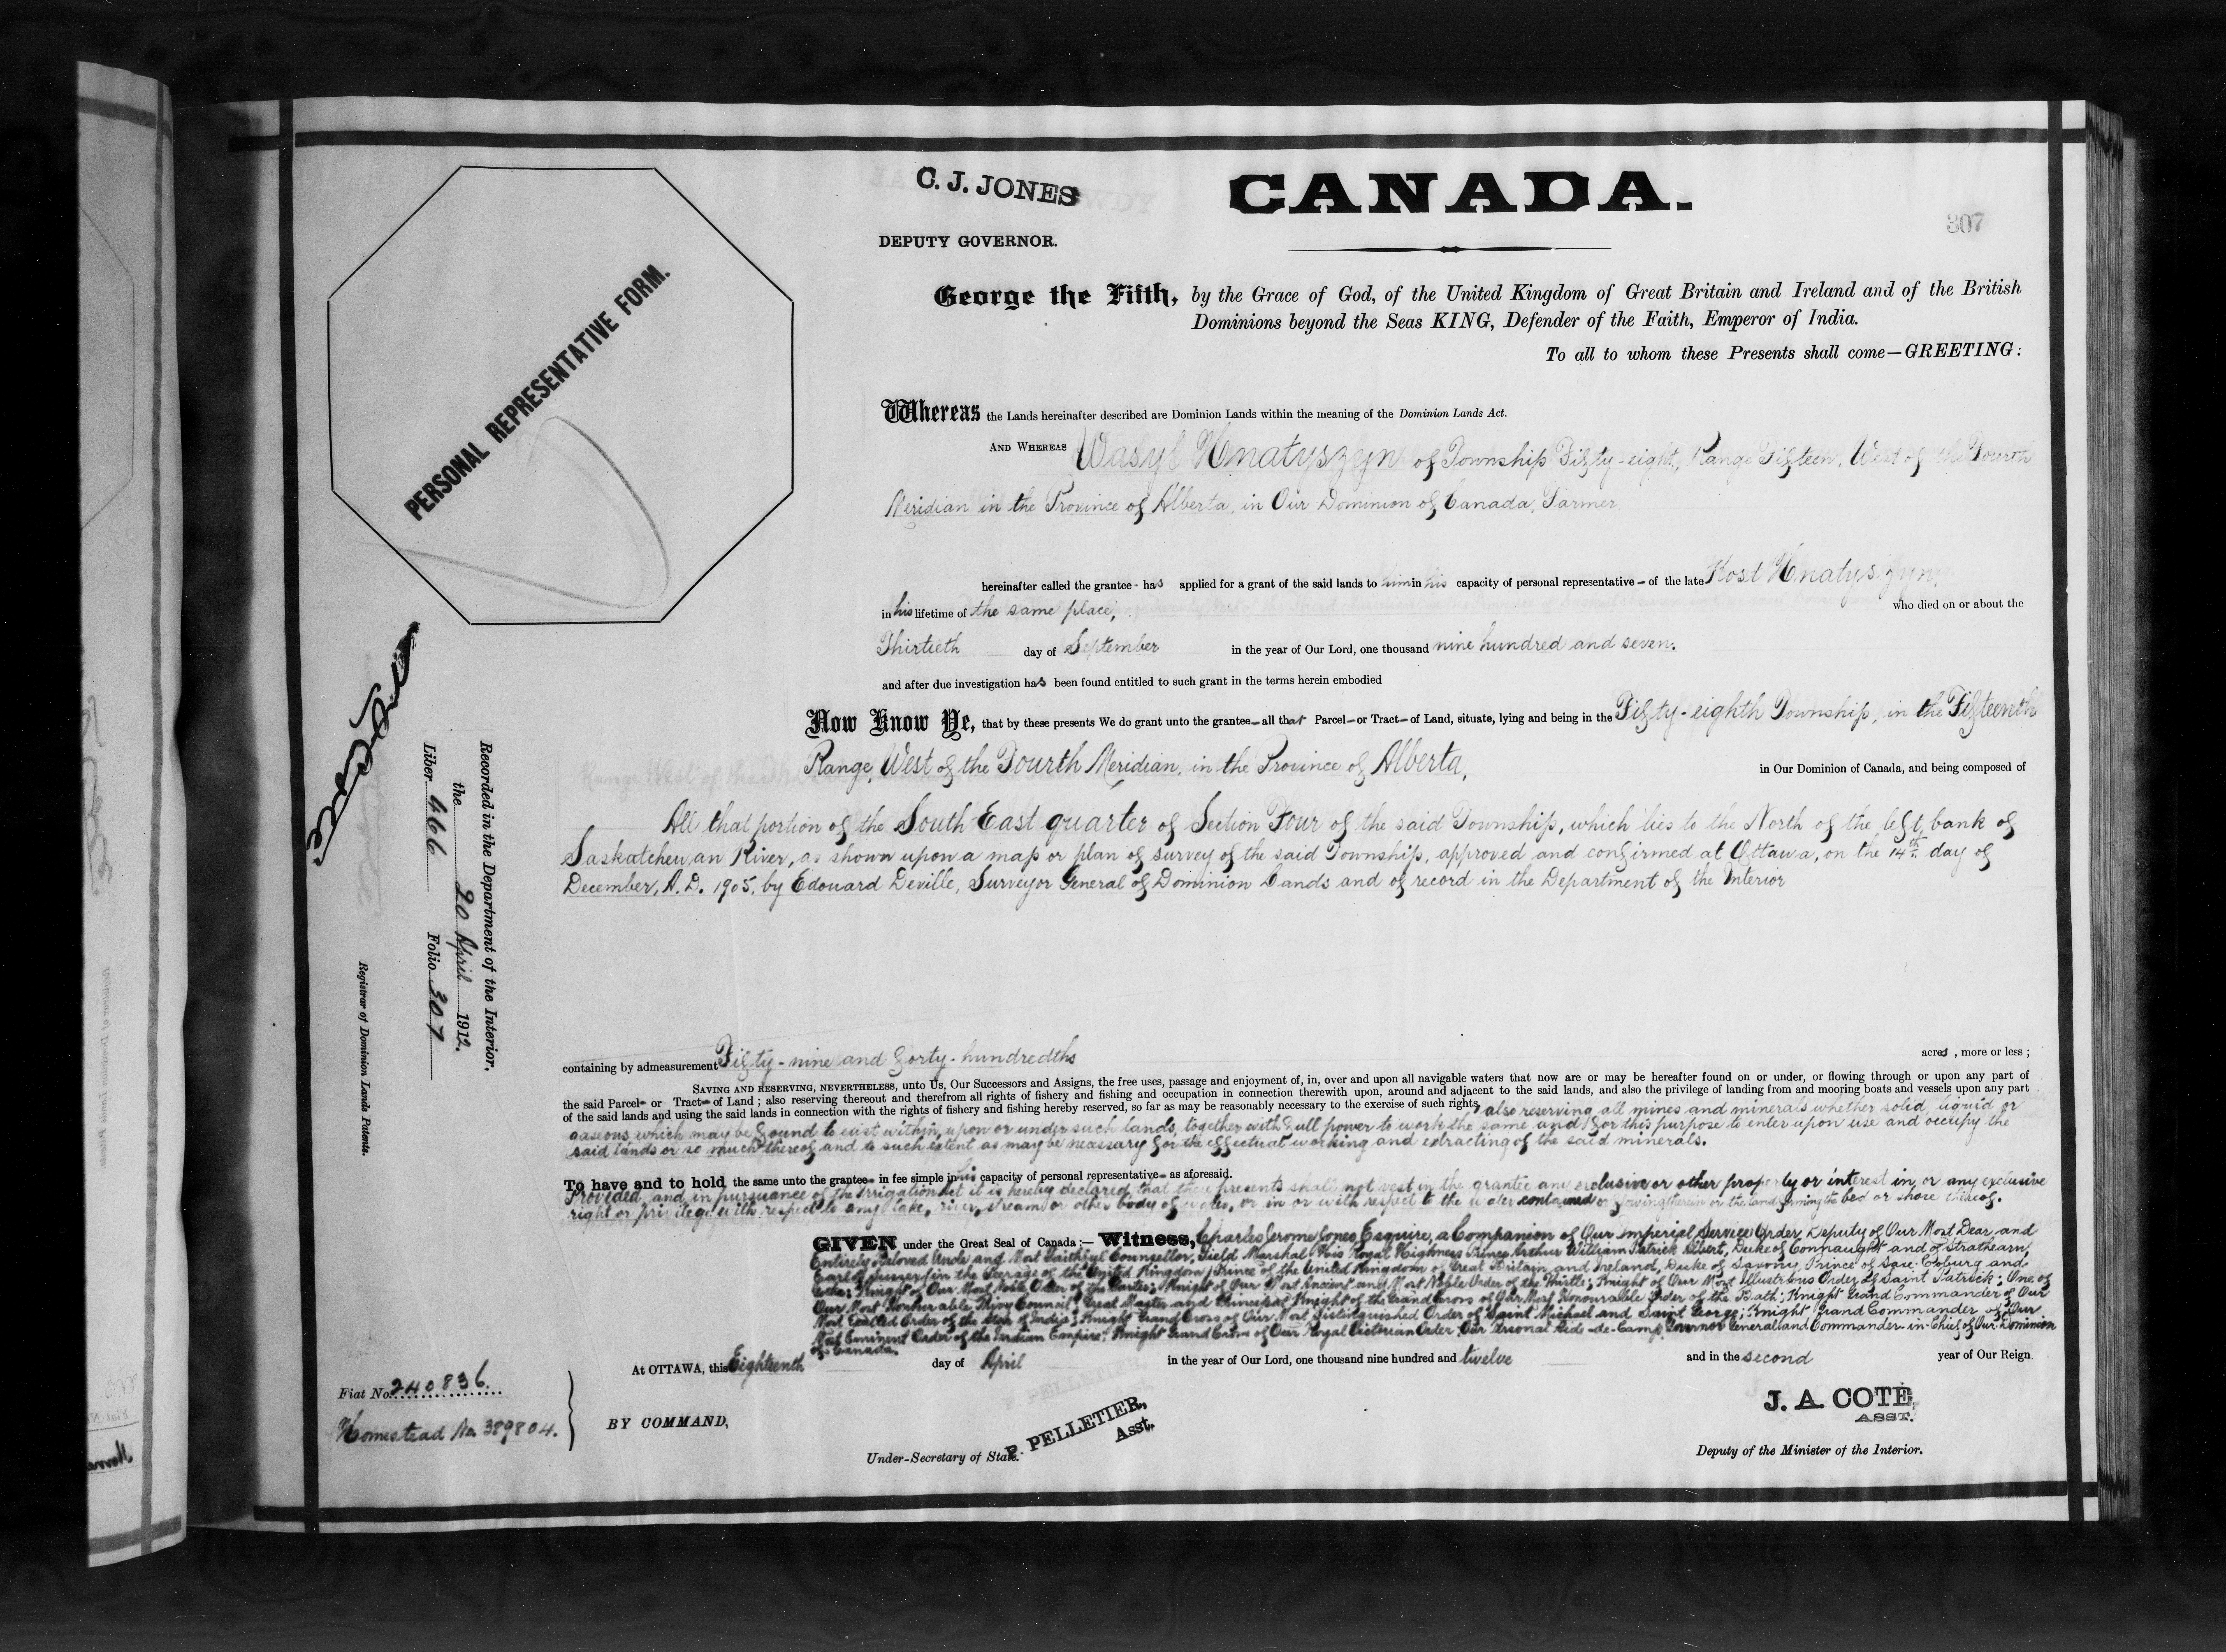 C. J. JONES
CANADA.
307
DEPUTY GOVERNOR.
PERSONAL REPRESENTATIVE FORM.
George the Fifth, by the Grace of God, of the United Kingdom of Great Britain and Ireland and of the British
Dominions beyond the Seas KING, Defender of the Faith, Emperor of India.
To all to whom these Presents shall come—GREETING:
Whereas the Lands hereinafter described are Dominion Lands within the meaning of the Dominion Lands Act.
AND WHEREAS Wasyl Hnatyszyn of Township Fifty-eight, Range Fifteen, West of the Fourth
Meridian in the Province of Alberta, in Our Dominion of Canada, Farmer
hereinafter called the grantee - has applied for a grant of the said lands to him in his capacity of personal representative - of the late Kost Hnatyszyn,
in his lifetime of the same place, who died on or about the
Thirtieth day of September in the year of Our Lord, one thousand nine hundred and seven.
and after due investigation has been found entitled to such grant in the terms herein embodied
Now Know Ye, that by these presents We do grant unto the grantee - all that Parcel - or Tract - of Land, situate, lying and being in the Fifty-eighth Township, in the Fifteenth
Range, West of the Fourth Meridian, in the Province of Alberta, in Our Dominion of Canada, and being composed of
All that portion of the South East quarter of Section Four of the said Township, which lies to the North of the left bank of
Saskatchewan River, as shown upon a map or plan of survey of the said Township, approved and confirmed at Ottawa, on the 14th day of
December, A.D. 1905, by Edouard Deville, Surveyor General of Dominion Lands and of record in the Department of the Interior
containing by admeasurement Fifty-nine and forty-hundredths acres , more or less ;
SAVING AND RESERVING, NEVERTHELESS, unto Us, Our Successors and Assigns, the free uses, passage and enjoyment of, in, over and upon all navigable waters that now are or may be hereafter found on or under, or flowing through or upon any part of
the said Parcel - or Tract - of Land ; also reserving thereout and therefrom all rights of fishery and fishing and occupation in connection therewith upon, around and adjacent to the said lands, and also the privilege of landing from and mooring boats and vessels upon any part
of the said lands and using the said lands in connection with the rights of fishery and fishing hereby reserved, so far as may be reasonably necessary to the exercise of such rights, also reserving all mines and minerals whether solid, liquid or
gaseous which may be found to exist within, upon or under such lands, together with full power to work the same and for this purpose to enter upon use and occupy the
said lands or so much thereof and to such extent as may be necessary for the effectual working and extracting of the said minerals.
To have and to hold the same unto the grantee - in fee simple in his capacity of personal representative - as aforesaid.
Provided, and in pursuance of the Irrigation Act it is hereby declared that these presents shall not vest in the grantee any exclusive or other property or interest in, or any exclusive
right or privilege with respect to any lake, river, stream or other body of water, or in or with respect to the water contained or flowing therein or the land forming the bed or shore thereof.
GIVEN under the Great Seal of Canada :— Witness, Charles Jerome Jones, Esquire, a Companion of Our Imperial Service Order, Deputy of Our Most Dear and
Entirely Beloved Uncle and Most Faithful Counsellor, Field Marshal His Royal Highness Prince Arthur William Patrick Albert, Duke of Connaught and of Strathearn,
Earl of Sussex (in the Peerage of the United Kingdom) Prince of the United Kingdom of Great Britain and Ireland, Duke of Saxony, Prince of Saxe-Coburg and
Gotha; Knight of Our Most Noble Order of the Garter; Knight of Our Most Ancient and Most Noble Order of the Thistle; Knight of Our Most Illustrious Order of Saint Patrick; One of
Our Most Honourable Privy Council; Great Master and Principal Knight of the Grand Cross of Our Most Honourable Order of the Bath; Knight Grand Commander of Our
Most Exalted Order of the Star of India; Knight Grand Cross of Our Most Distinguished Order of Saint Michael and Saint George; Knight Grand Commander of Our
Most Eminent Order of the Indian Empire; Knight Grand Cross of Our Royal Victorian Order; Our Personal Aide-de-Camp, Governor General and Commander-in-Chief of Our Dominion
of Canada.
At OTTAWA, this Eighteenth day of April in the year of Our Lord, one thousand nine hundred and twelve and in the second year of Our Reign
BY COMMAND,
P. PELLETIER,
Asst.
Under-Secretary of State.
J. A. COTE,
ASST.
Deputy of the Minister of the Interior.
Fiat No. 240836.
Homestead No. 389804.
Recorded in the Department of the Interior.
the 20 April 1912.
Liber 466 Folio 307
Registrar of Dominion Lands Patents.